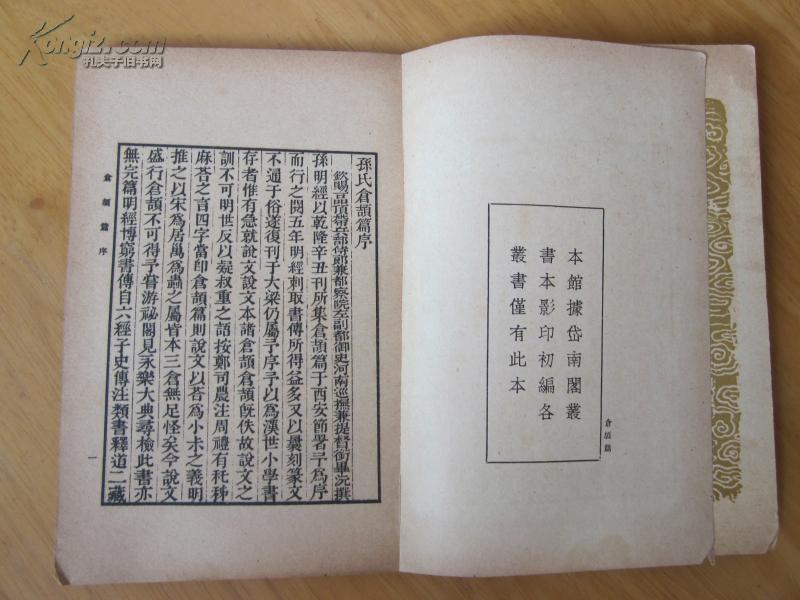 Kongfz.com
孔夫子旧书网
倉頡篇
本館據岱南閣叢
書本影印初編各
叢書僅有此本
孫氏倉頡篇序
欽賜一品頂帶兵部侍郎兼都察院左副都御史河南巡撫兼提督銜畢沅撰
孫明經以乾隆辛丑刊所集倉頡篇于西安節署予為序
而行之閱五年明經刺取書傳所得益多又以曩刻篆文
不通于俗遂復刊于大梁仍屬予序予以為漢世小學書
存者惟有急就說文說文本諸倉頡倉頡旣佚故說文之
訓不可明世反以疑叔重之語按鄭司農注周禮有秅秭
麻荅之言四字當即倉頡篇則說文以荅為小尗之義明
推之以宋為居萬為蟲之屬皆本三倉無足怪矣今說文
盛行倉頡不可得予嘗游祕閣見永樂大典尋檢此書亦
無完篇明經博窮書傳自六經子史傳注類書釋道二藏
倉頡篇 序
一